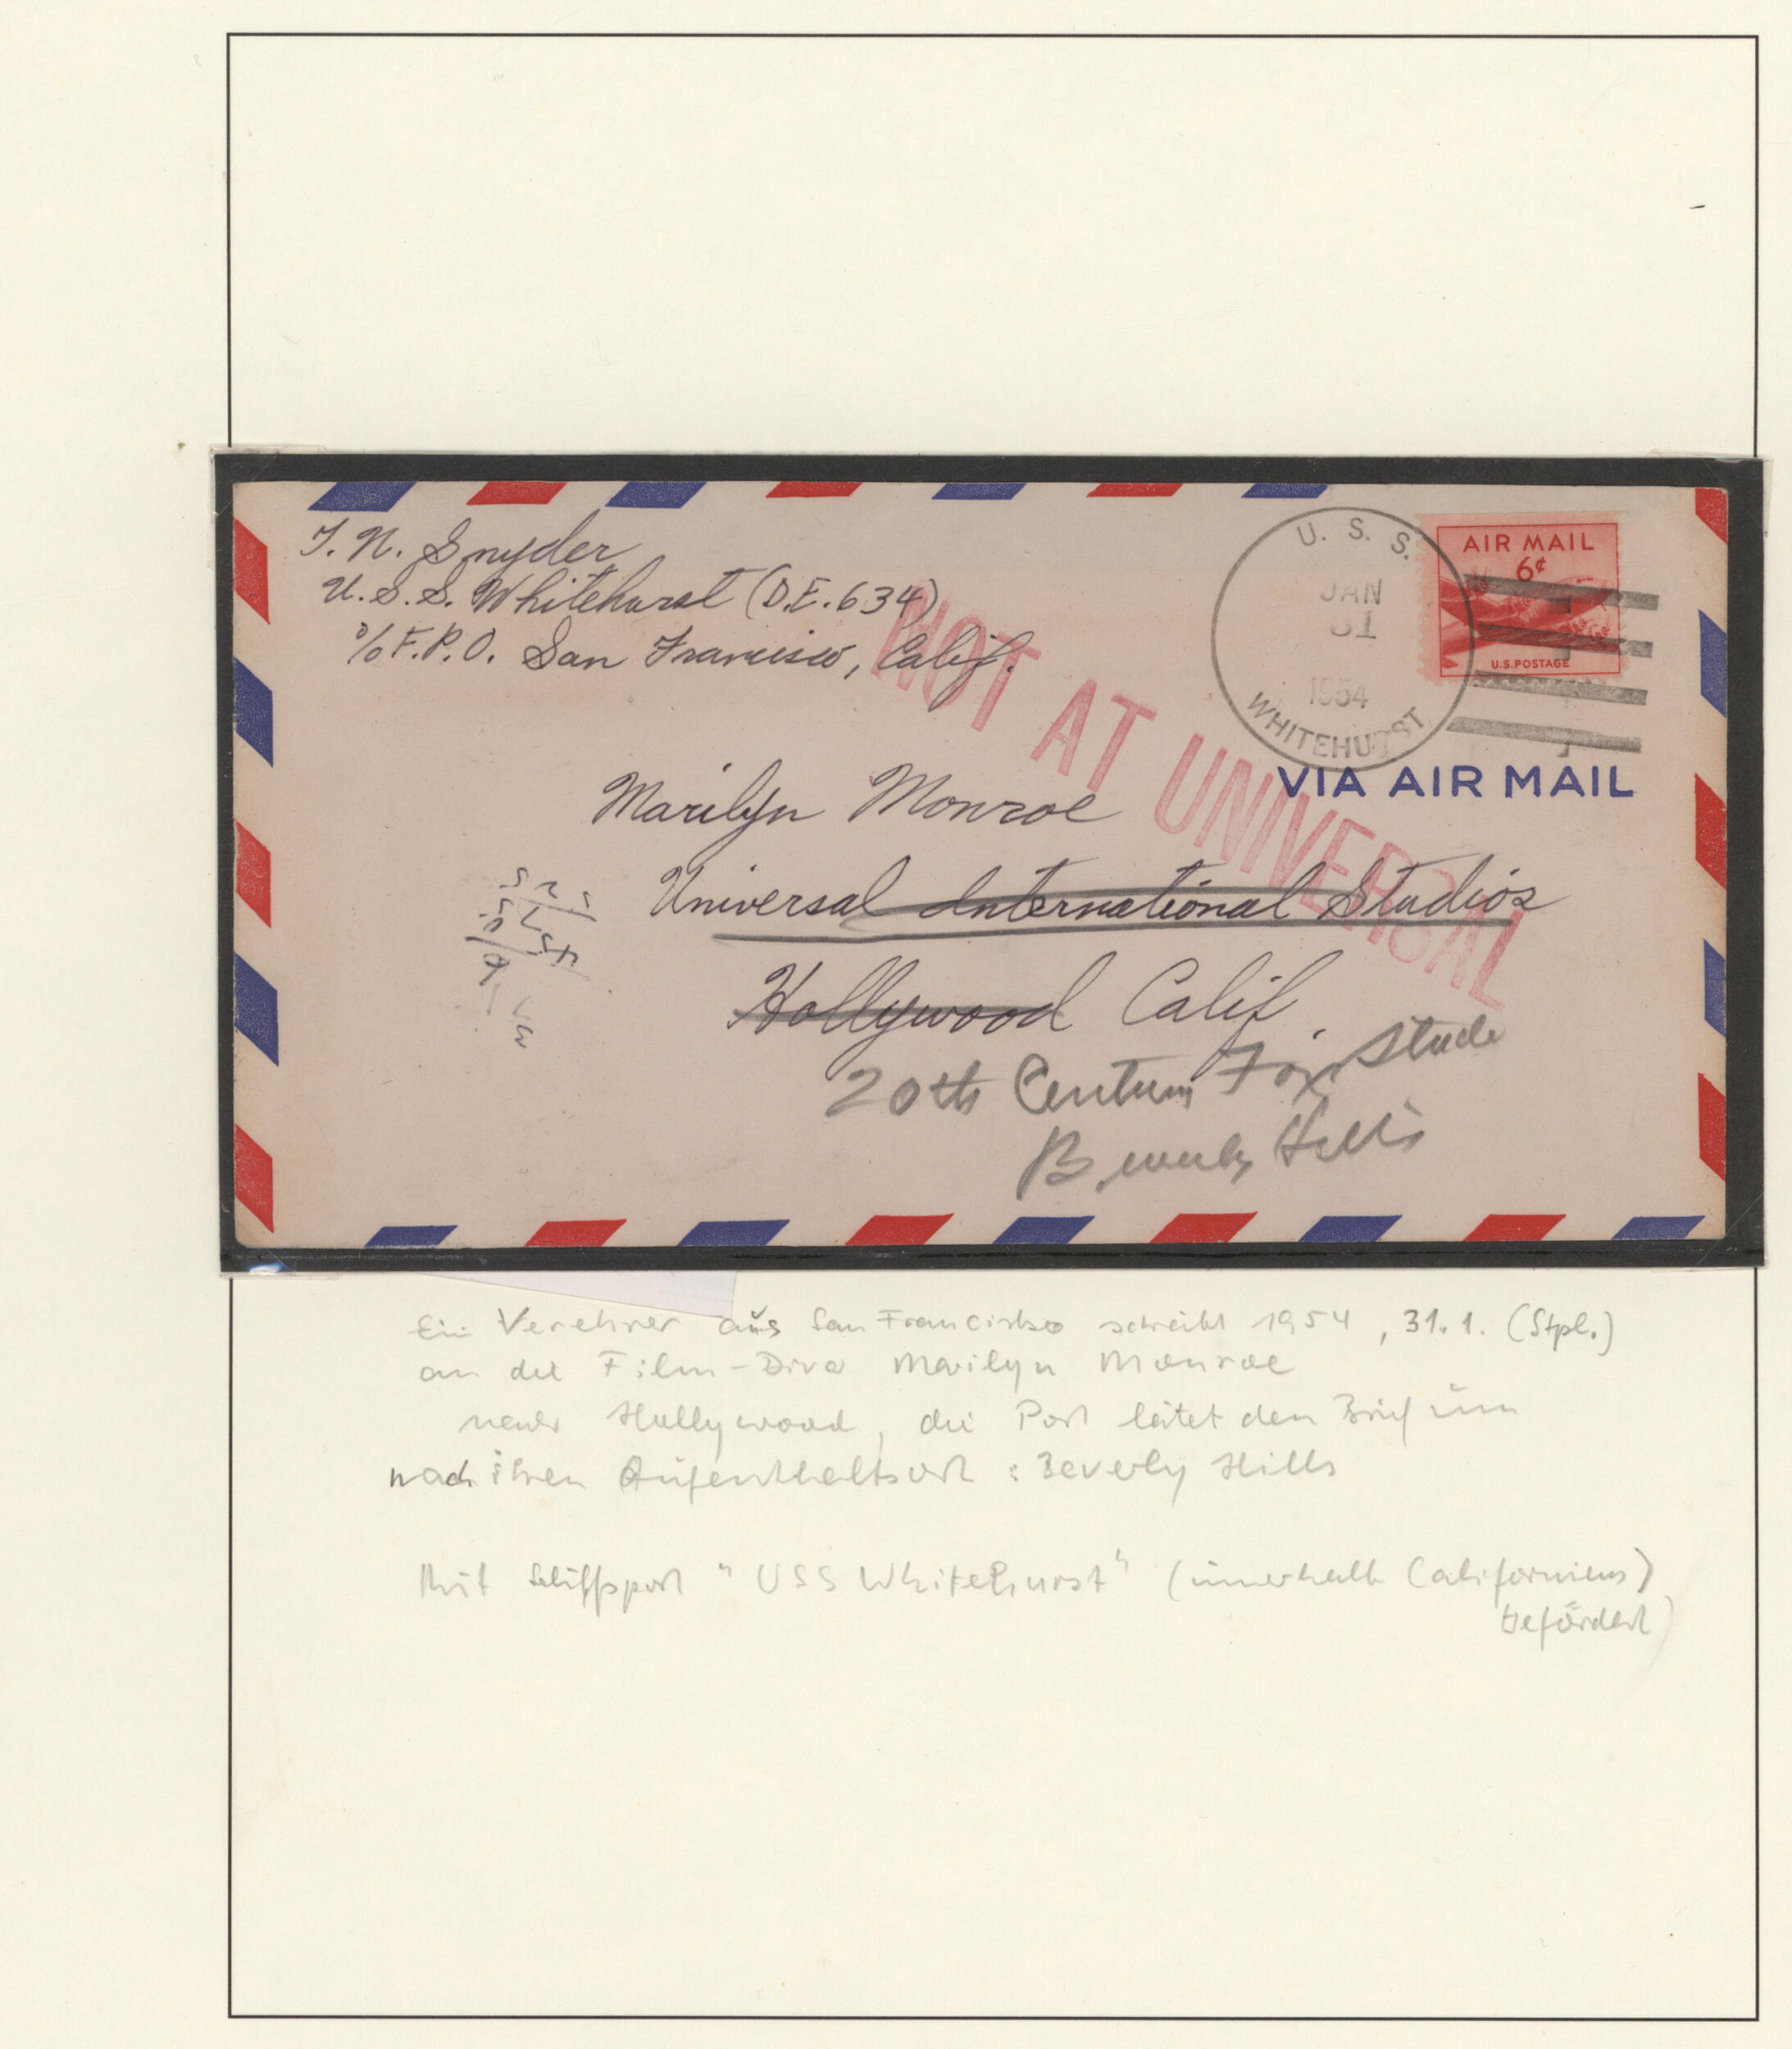 T. N. Snyder
U.S.S. Whitehurst (D.E. 634)
c/o F.P.O. San Francisco, Calif.
U. S. S.
JAN
31
1954
WHITEHURST
AIR MAIL
6¢
U.S. POSTAGE
VIA AIR MAIL
NOT AT UNIVERSAL
Marilyn Monroe
Universal International Studios
Hollywood Calif.
20th Century Fox Studio
Beverly Hills
Ein Verehrer aus San Francisko schreibt 1954, 31.1. (Stpl.)
an die Film-Diva Marilyn Monroe
nach Hollywood, die Post leitet den Brief um
nach ihren Aufenthaltsort: Beverly Hills
Mit Schiffspost "USS Whitehurst" (innerhalb Californiens)
befördert)